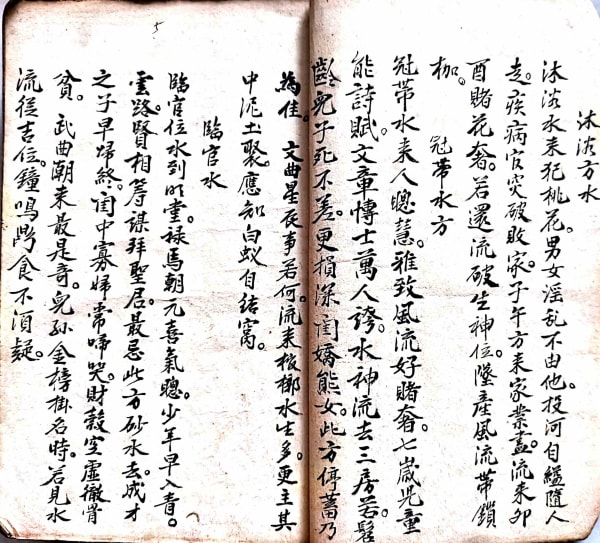 沐浴方水
沐浴水来犯桃花。男女淫乱不由他。投河自縊隨人
走。疾病官灾破敗家。子午方来家業盡。流来卯
酉賭花奢。若還流破生神位。墜産風流帶鎖
枷。
冠帶水方
冠帶水来人聰慧。雅致風流好賭奢。七歲児童
能詩賦。文章博士萬人誇。水神流去三房若髫
齡兒子死不差。更損深閨嬌態女。此方停蓄乃
為佳。
文曲星辰事若何。流来棺槨水生多。更主其
中泥土聚。應知白蚁自結窩
臨官水
臨官位水到明堂。禄馬朝元喜氣聰。少年早入青
雲路。賢相籌謀拜聖居。最忌此方砂水去。成才
之子早歸終。闺中寡婦常啼哭。財穀空虛徹骨
貧。武曲朝来最是奇。兒孫金榜掛名時。若見水
流從吉位。鐘鳴鼎食不須疑。